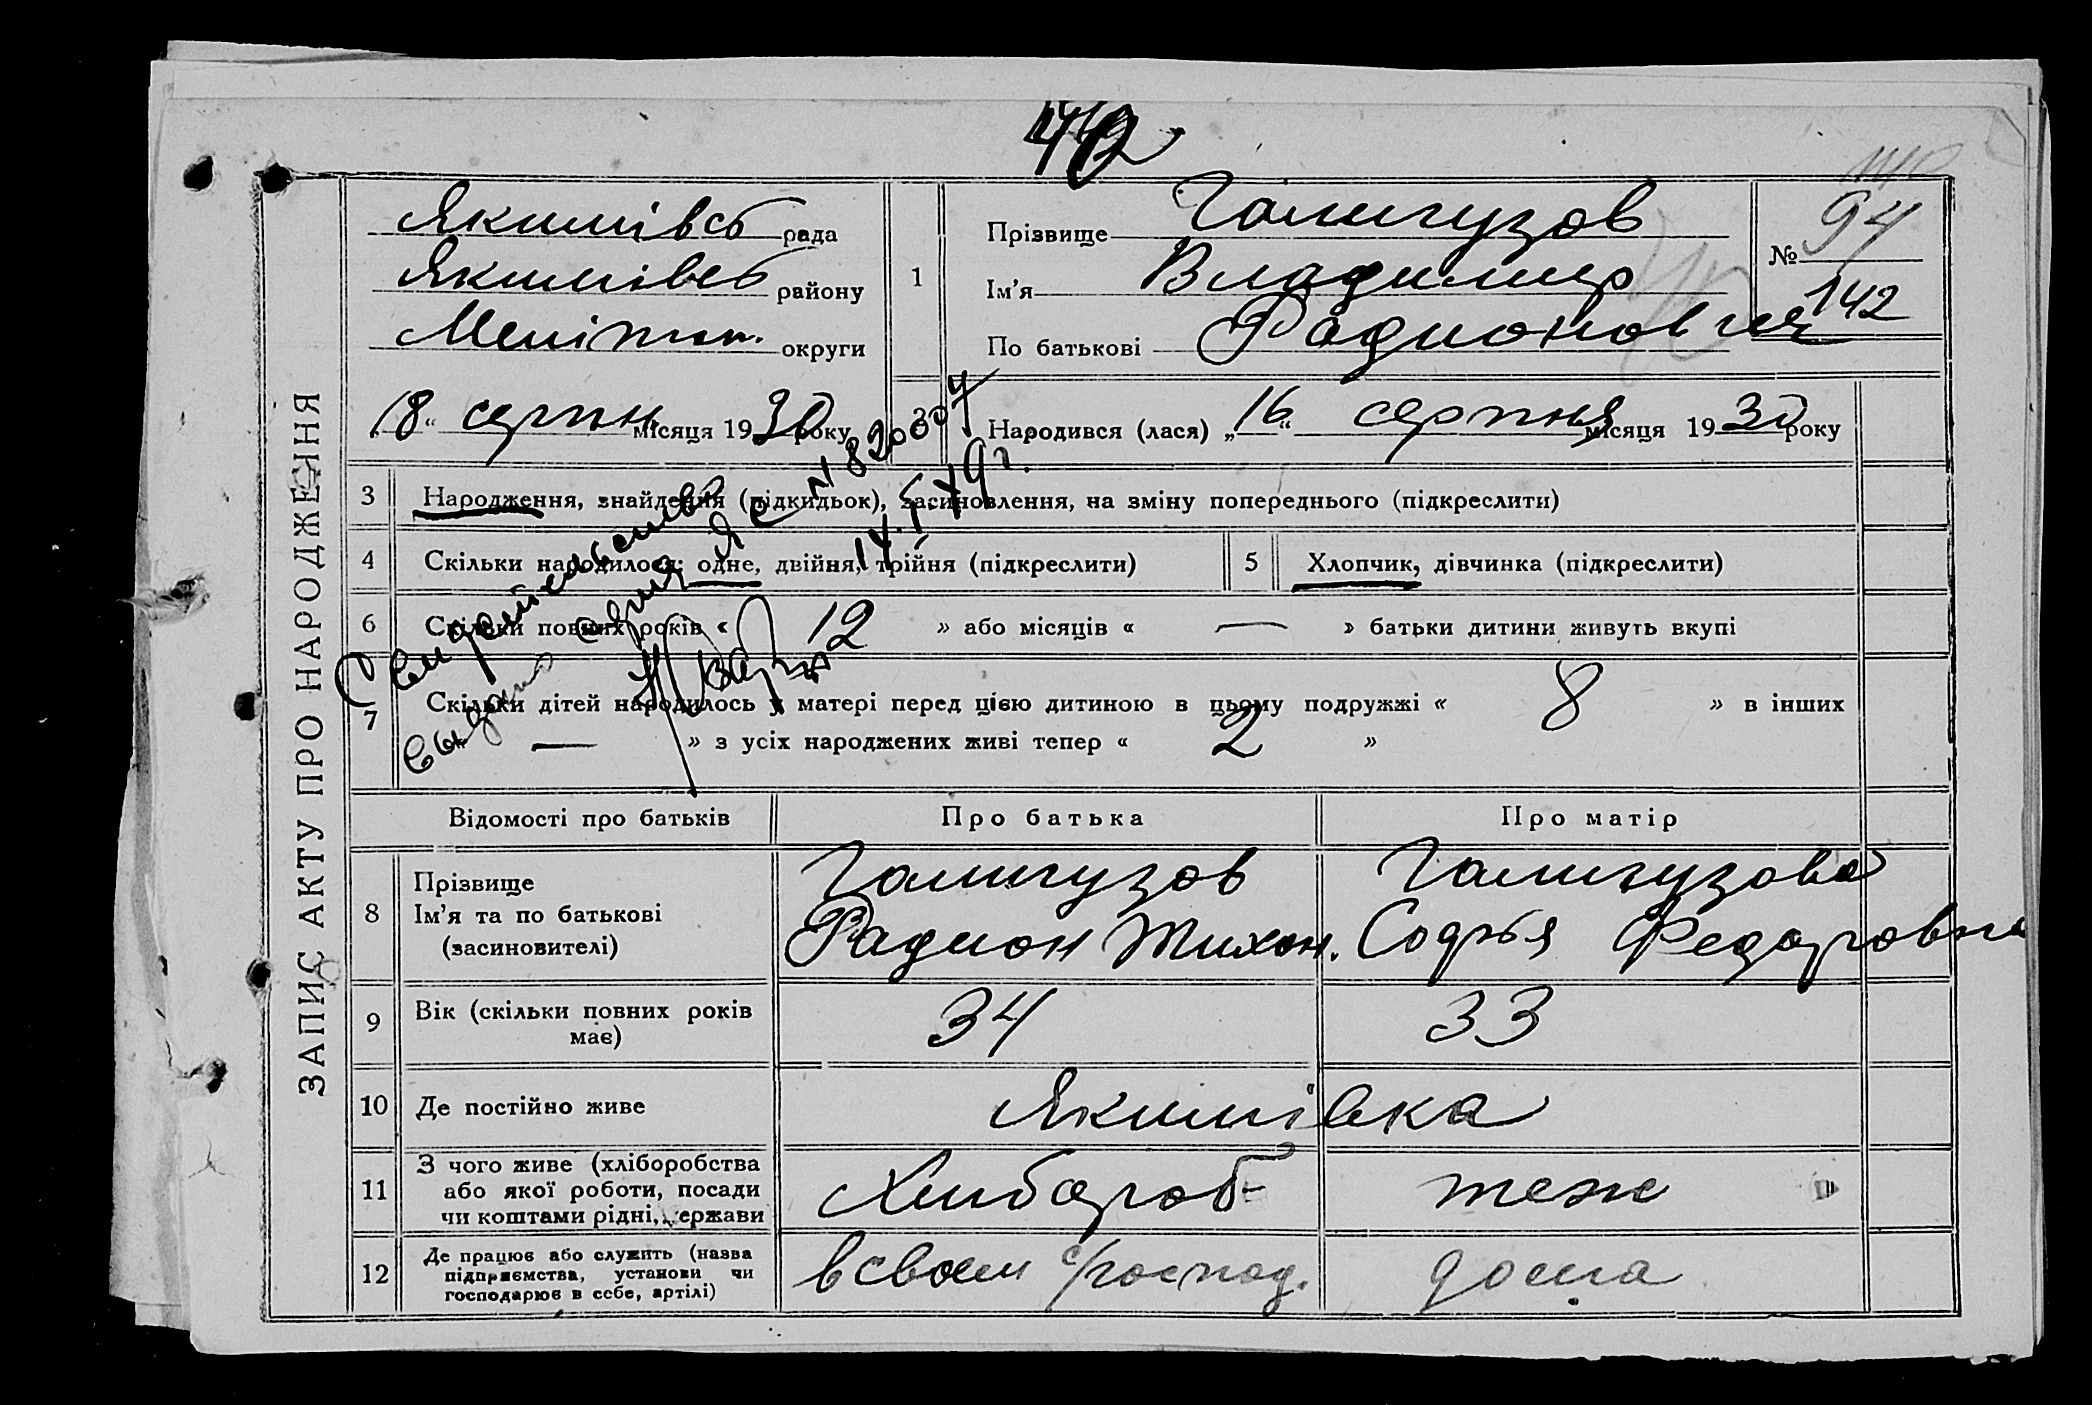 142
ЗАПИС АКТУ ПРО НАРОДЖЕННЯ
Якимівсь рада
Якимівсь району
Мелітоп. округи
„18“ серпня місяця 1930 року
1
Прізвище Галигузов
Ім'я Владимир
По батькові Радионович
№ 94
142
Народився (лася) „16“ серпня місяця 1930 року
3 Народження, знайдення (підкидьок), засиновлення, на зміну попереднього (підкреслити)
4 Скільки народилося: одне, двійня, трійня (підкреслити)
5 Хлопчик, дівчинка (підкреслити)
6 Скільки повних років « 12 » або місяців « — » батьки дитини живуть вкупі
7 Скільки дітей народилось у матері перед цією дитиною в цьому подружжі « 8 » в інших
« — » з усіх народжених живі тепер « 2 »
Свидетельство
выдано серия Я С № 820087
14.5.49г.
Відомості про батьків Про батька Про матір
8 Прізвище
Ім'я та по батькові
(засиновителі)
Галигузов
Радион Тихон.
Галигузова
Софья Федоровна
9 Вік (скільки повних років
має)
34 33
10 Де постійно живе Якимівка
11 З чого живе (хліборобства
або якої роботи, посади
чи коштами рідні, держави
Хлибороб теж
12 Де працює або служить (назва
підприємства, установи чи
господарює в себе, артілі)
в своем с/господ. дома